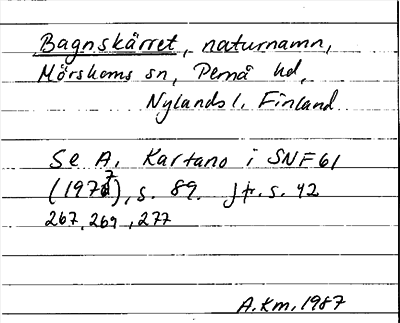 Bagnskärret, naturnamn,
Mörskoms sn, Pernå hd,
Nylands l, Finland
Se A. Kartano i SNF 61
(1977), s. 89. Jfr. s. 42
267, 269, 277
A.Km, 1987